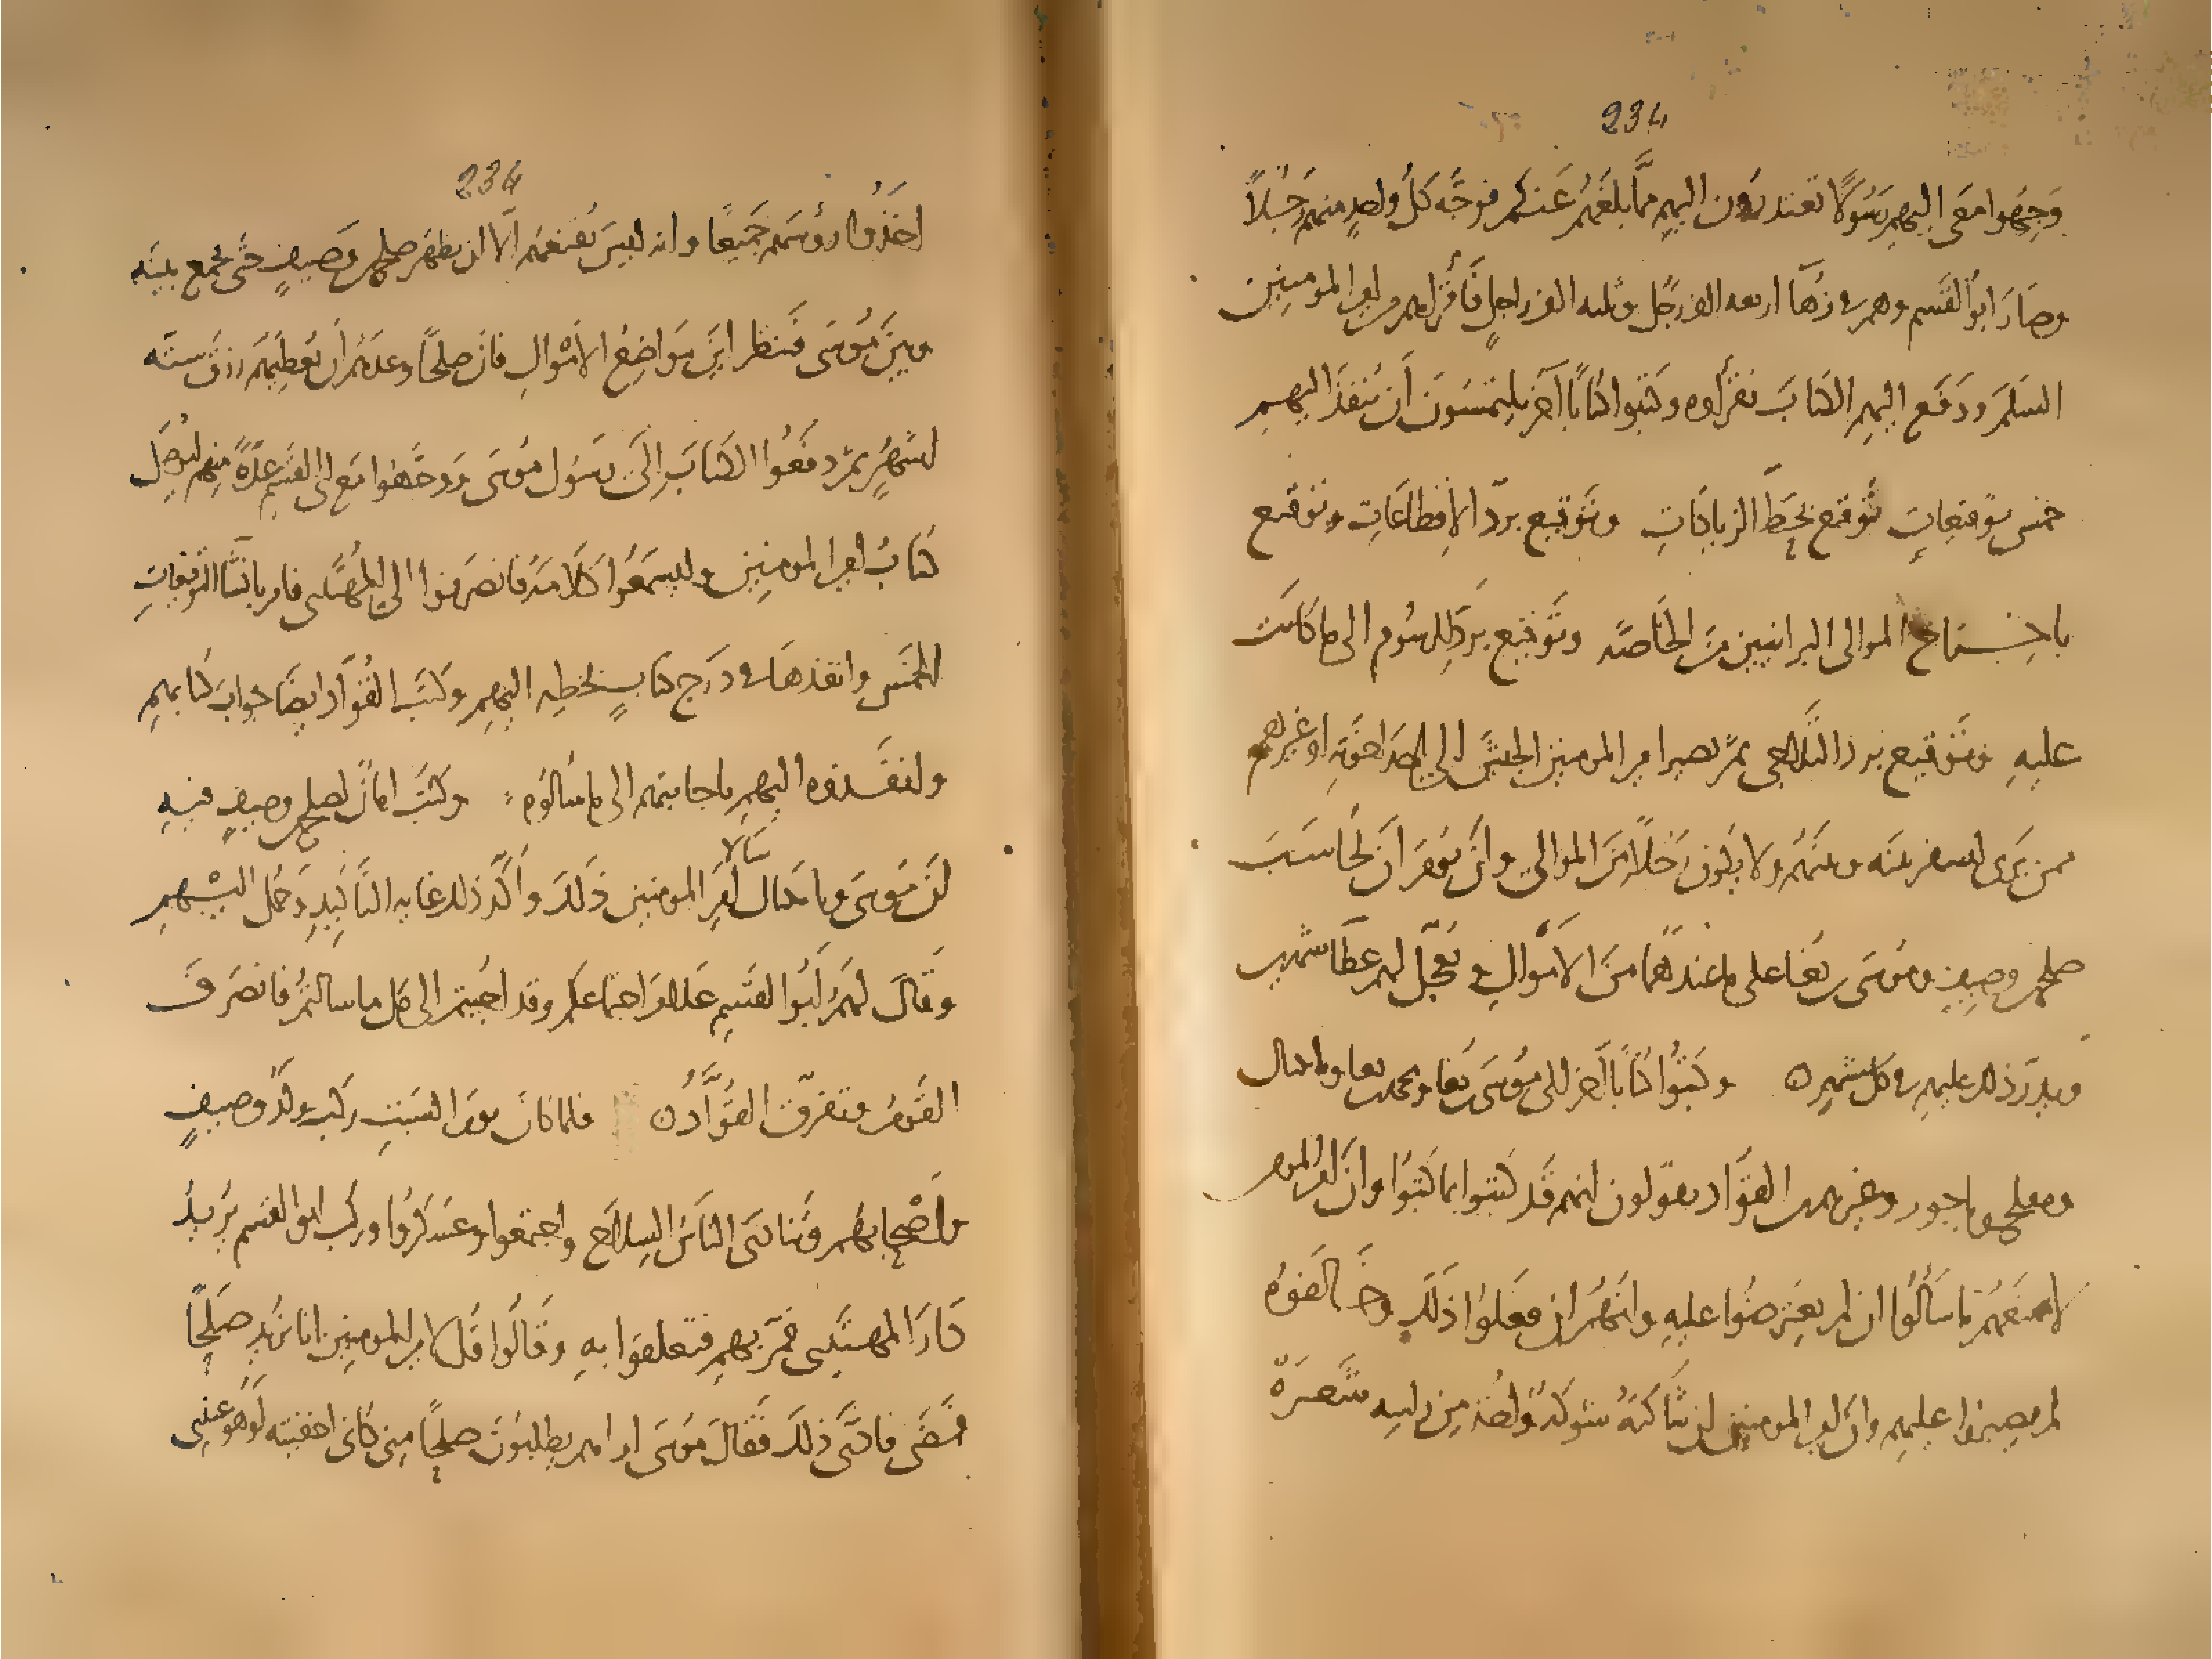 234
وَجِّهوا معى اليهم رسُولًا تعتذرون اليهم ممّا بلغهُم عَنكم فوجَّه كلُّ واحدٍ منهم رَجُلاً
وصَارَ ابُو القسم وهم في زُهَآ اربعه الف رجُل وثلثه الف راجل فَأقرَاهم من امير المومنين
السَلَمَ ودَفَع اليهم الكتَابَ فقرأوه وكتبوا كتابًا آخر يلتمسُونَ أَن تنفذَ اليهم
خمس توقيعاتٍ تَوقيع بحَطّ الزيادَاتِ وتَوقيع بردّ الإقطاعَاتِ وتوقيع
باخراج الموالى البرانيين منَ الخَاصَّه وتَوقيع بردّ الرسُوم الى ما كانت
عليهِ وتَوقيع برد التلاجى ثمّ يصير امير المومنين الجَيش الى احد اخوته او غيرهم
ممن يَرَى ليسفر بينَه وبينهُم ولا يكون رَجُلاً منَ الموالى وانْ يُومَر اَن يُحَاسَبَ
صلح بن وصيف ومُوسَى بن بُغا على ما عندهُما منَ الاموالِ ويُعَجّل لهم عطَآ شهرين
ويدرّ ذلك عليهم في كل شهرين ه وكتبُوا كتَابًا آخر الى مُوسَى بن بُغا ومحمد بن بغا وبابكيال
ومفلح وياجور وغيرهم من القوَّاد يقولون انهم قَد كتبوا بما كتبُوا وانَّ امير المومنين
لا يمنعهُم ما سَألُوا ان لم يعترضُوا عليهِ وانّهُم ان فعلوا ذَلكَ وخَالفوهُ
لم يصبروا عليهم وانّ امير المومنين ان شاكته شوكةٌ واُخذ مِن راسِه شَعرَةٌ
234
اخَذُوا رؤسَهم جَميعًا وانه ليسَ يُقنعهُم الّا ان يظهَر صلح بن وَصيفٍ حتّى يجمع بينَه
وبينَ مُوسَى فَينظر اينَ موَاضِعُ الاموَالِ فانّ صلحًا وعدهُم اَن يُعطِيَهُم ارزَاقَ ستّه
اشهُرٍ ثمّ دفعُوا الكتابَ اِلى رَسُول مُوسَى ووجّهوا مَع ابى القسم عِدّةً منهم ليُوصِل
كتابُ امير المومنين وليسمعُوا كلامَهُ فانصَرفوا الى المُهتدى فامر بانشَا التوقيعاتِ
الخمس وانفذهَا في دَرَج كتابٍ بخطِه اليهِم وكتَب القُوّاد ايضًا جوابَ كتابهم
وانفَذوه اليهم باجابتهم الى ما سَالُوه وكتَبَ امَانٌ لصلح بن وصيفٍ فيهِ
اَن مُوسَى وبابكيال سَالا اَميرَ المومنين ذَلكَ واَكّد ذلك غايه التَاكيدِ وَحُمل اليهم
وَقالَ لهُم اَبُوا القسم عَلامَ اجتماعكم وقد اُجبتم الى كل ما سالتمُ فانصَرفَ
القَومُ وتفرّقَ القُوَّادُ ه فلما كانَ يومَ السَبتِ ركب ولَدُ وصيفٍ
واَصْحابهُم وتَنادَى النَاسُ السِلاحَ واجتمعوا وعَسكرُوا وركب ابو القسم يُرِيدُ
دَارَ المهتدى فمَرّ بهِم فتعلقوا بهِ وقَالُوا قُل لامير المومنين انا نُريد صلِحًا
فمضَى فادّى ذلكَ فَقالَ مُوسَى اراهم يطلبُونَ صلِحًا مِنى كانى اخفيته اَو هُو عندى